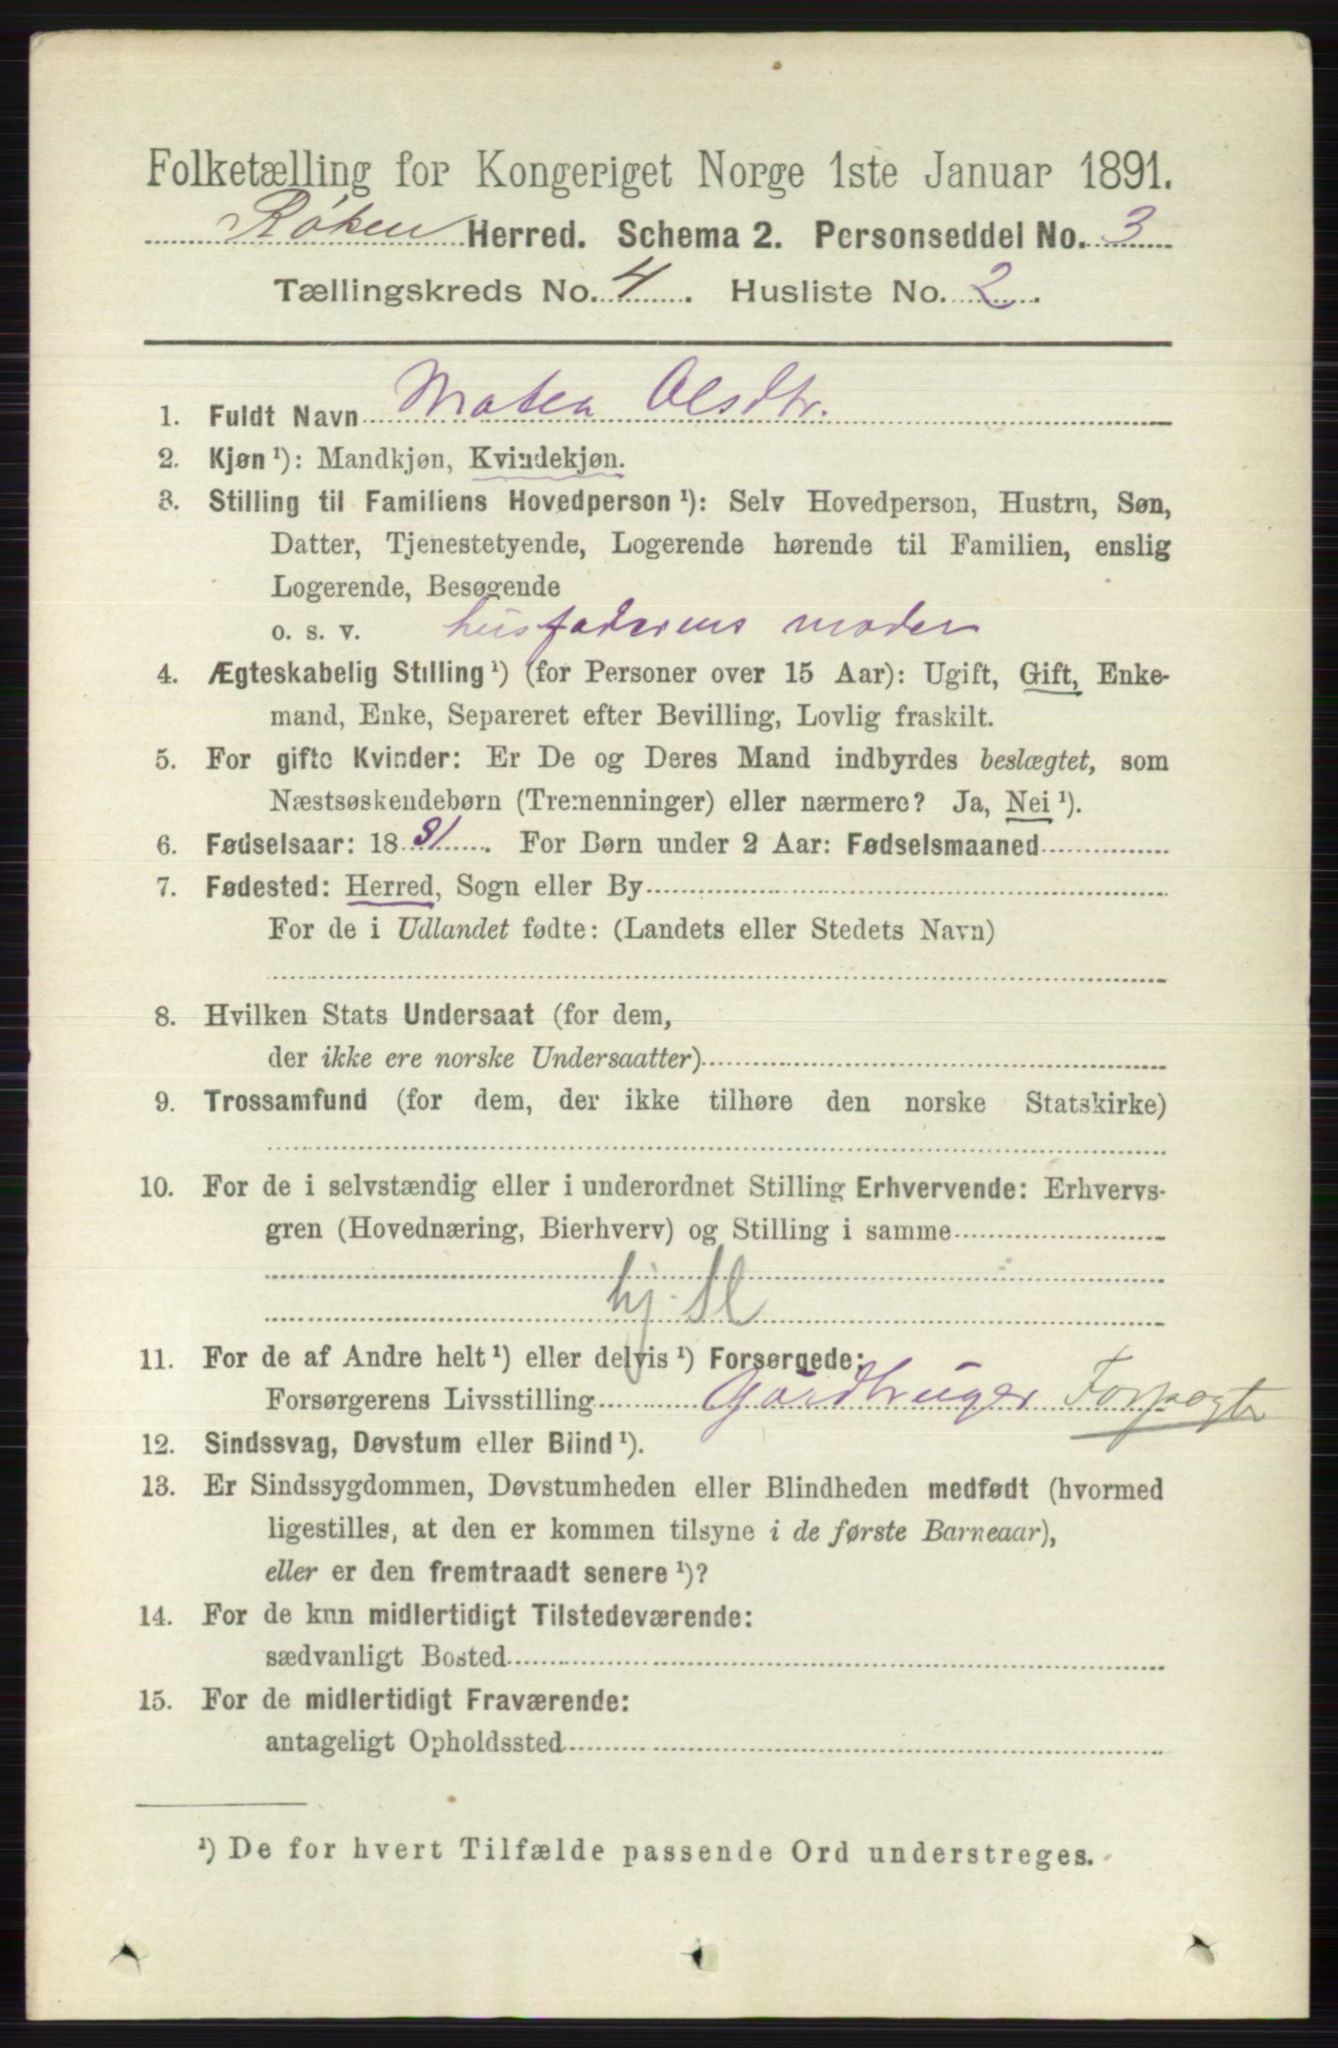 Folketælling for Kongeriget Norge 1ste Januar 1891.
Røken Herred. Schema 2. Personseddel No. 3
Tællingskreds No. 4. Husliste No. 2.
1. Fuldt Navn Matea Olsdtr.
2. Kjøn ¹): Mandkjøn, Kvindekjøn.
3. Stilling til Familiens Hovedperson ¹): Selv Hovedperson, Hustru, Søn,
Datter, Tjenestetyende, Logerende hørende til Familien, enslig
Logerende, Besøgende
o. s. v. husfaderens moder
4. Ægteskabelig Stilling ¹) (for Personer over 15 Aar): Ugift, Gift, Enke-
mand, Enke, Separeret efter Bevilling, Lovlig fraskilt.
5. For gifte Kvinder: Er De og Deres Mand indbyrdes beslægtet, som
Næstsøskendebørn (Tremenninger) eller nærmere? Ja, Nei ¹).
6. Fødselsaar: 18 31. For Børn under 2 Aar: Fødselsmaaned
7. Fødested: Herred, Sogn eller By
For de i Udlandet fødte: (Landets eller Stedets Navn)
8. Hvilken Stats Undersaat (for dem,
der ikke ere norske Undersaatter)
9. Trossamfund (for dem, der ikke tilhøre den norske Statskirke)
10. For de i selvstændig eller i underordnet Stilling Erhvervende: Erhvervs-
gren (Hovednæring, Bierhverv) og Stilling i samme
hj. Sl
11. For de af Andre helt ¹) eller delvis ¹) Forsørgede:
Forsørgerens Livsstilling Gårdbruger Forpagter
12. Sindssvag, Døvstum eller Blind ¹).
13. Er Sindssygdommen, Døvstumheden eller Blindheden medfødt (hvormed
ligestilles, at den er kommen tilsyne i de første Barneaar),
eller er den fremtraadt senere ¹)?
14. For de kun midlertidigt Tilstedeværende:
sædvanligt Bosted
15. For de midlertidigt Fraværende:
antageligt Opholdssted
¹) De for hvert Tilfælde passende Ord understreges.